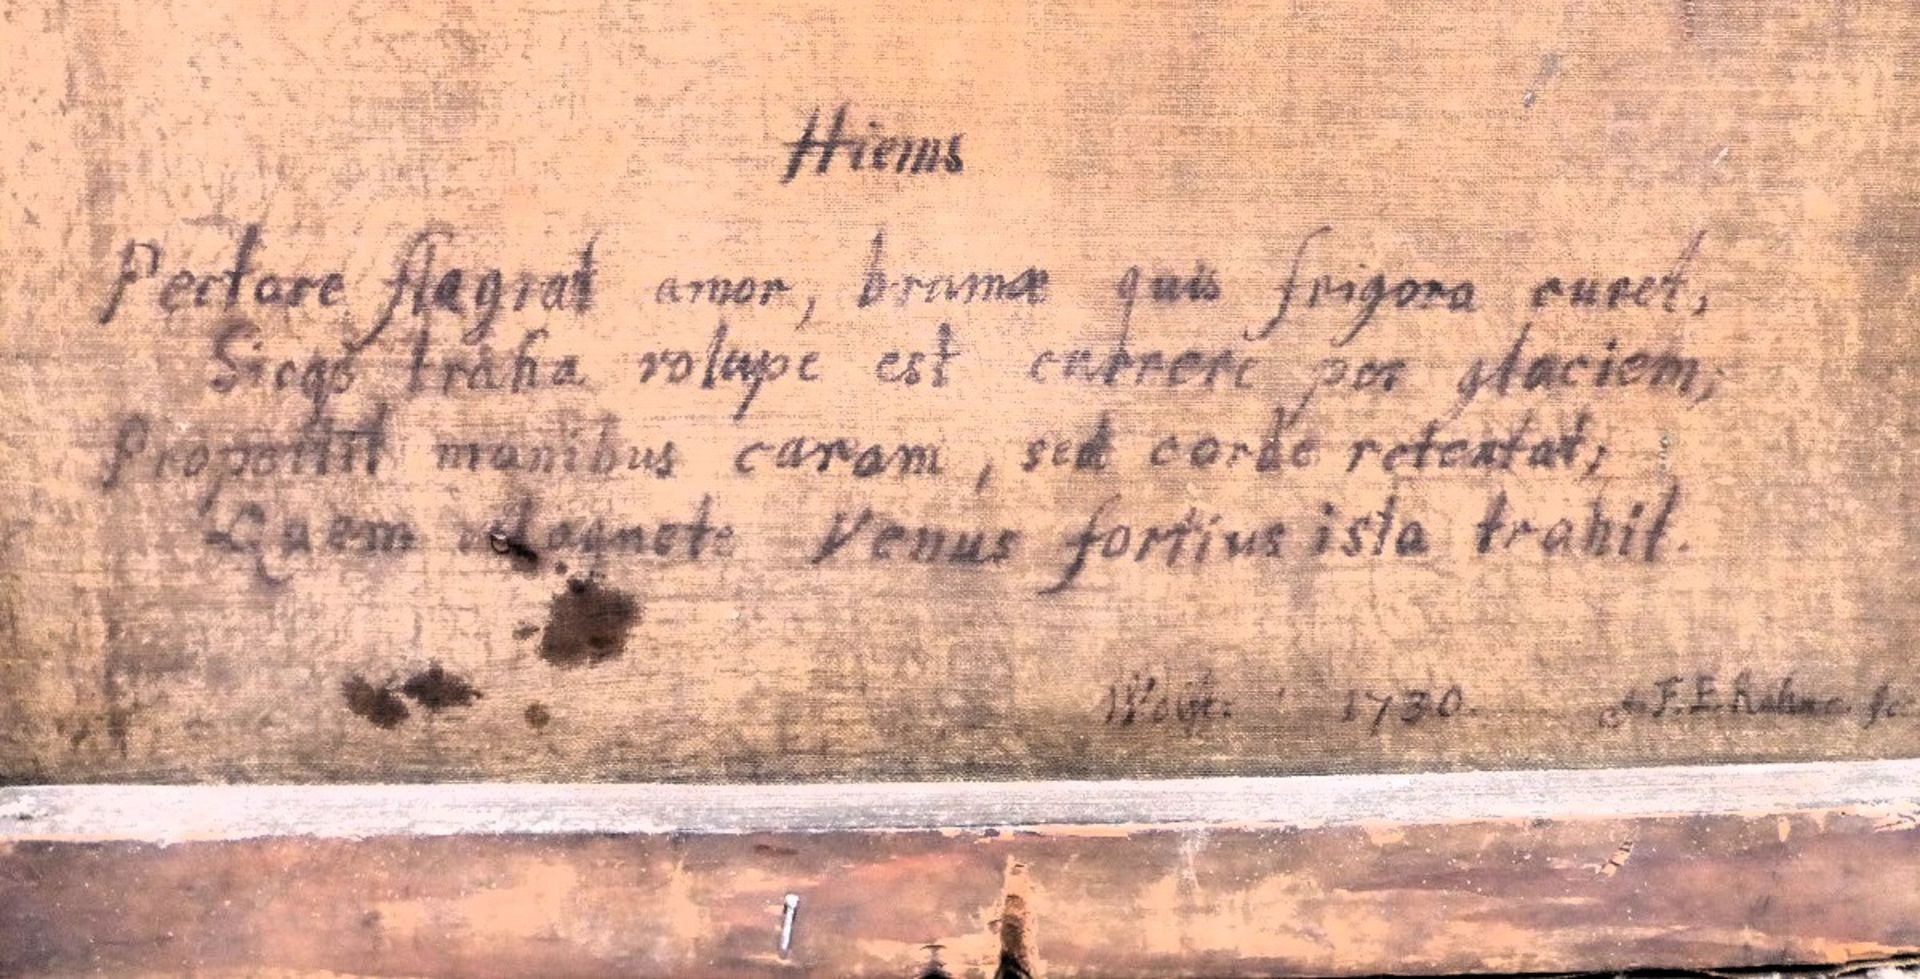 Hiems
Pectore flagrat amor, brumæ quis frigora curet,
Sicqȝ traha volupe est currere per glaciem;
Propellit manibus caram, sed corde retentat;
Quem Magnete Venus fortius ista trahit.
1730. F. E. Rahne. fec